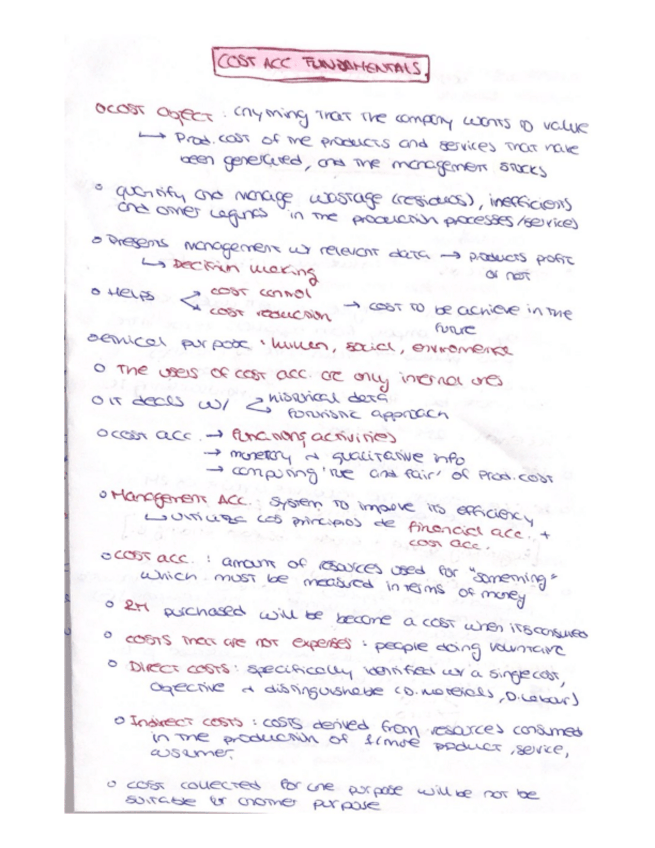 COST ACC FUNDAMENTALS
o COST Object : anything that the company wants to value
↳ Prod. cost of the products and services that have
been generated, and the management stocks
o quantify and manage wastage (residuos), inefficients
and other in the production processes/services
o Presents management w/ relevant data → products profit
or not
↳ Decision making
o Helps < cost control
cost reduction → cost to be achieve in the
future
o ethical purpose : human, social, enviromental
o The users of cost acc. are only internal ones
o IT deals w/ < historical data
futuristic approach
o cost acc. → functions/activities
→ monetary + qualitative info
→ computing 'true and fair' of Prod. cost
o Management Acc. : system to improve its efficiency
↳ utiliza los principios de financial acc. +
cost acc.
o COST acc. : amount of resources used for "something"
which must be measured in terms of money
o RM purchased will be become a cost when its consumed
o COSTS that are not expenses : people doing
o Direct costs : specifically identified w/ a single cost,
objective + distinguishable (D. materials, D. Labour)
o Indirect costs : costs derived from resources consumed
in the production of 1/more product, service,
costumer.
o cost collected for one purpose will be not be
suitable for another purpose